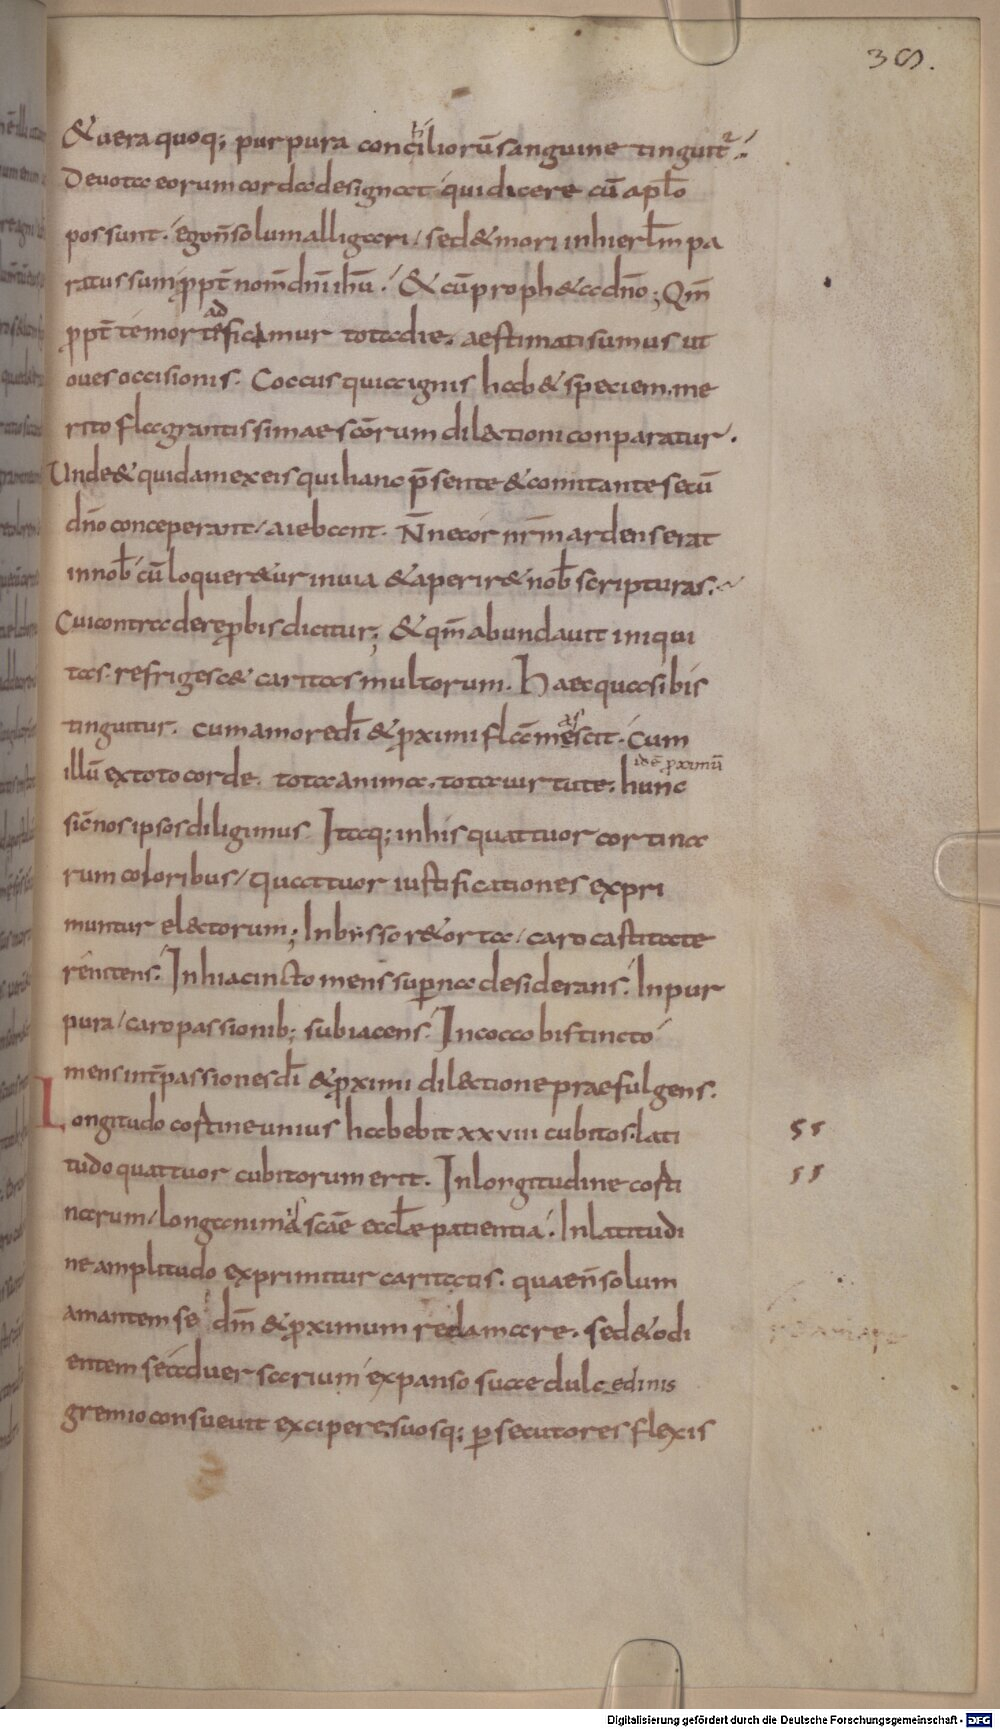 38.
&uera quoq; purpura conchiliorū sanguine tinguit᷑.
Deuota eorum corda designat qui dicere cū aplo
possunt. ego n̄ solum alligari / sed & mori in hierlm pa
ratus sum ꝓpt̄ nom̄ dn̄i ihū. & cū proph&a dn̄o; Qm̄
ꝓpt̄ te morte adficimur tota die. aestimati sumus ut
oues occisionis. Coccus quia ignis hab& speciem. me
rito flagrantissimae sc̄orum dilectioni conparatur.
Unde & quidam ex eis qui hanc p̄sente & comitante secū
dn̄o conceperant / aiebant. N̄ne cor nr̄m ardens erat
in nob̄ cū loquer&ur in uia & aperir& nob̄ scripturas.
Cui contra de reprobis dicitur; & qm̄ abundauit iniqui
tas. refrigesc& caritas multorum. Haec quasi bis
tinguitur. cum amore dī & ꝓximi flām̄ascit. Cum
illū ex toto corde. tota anima. tota uirtute. hunc
idē proximū
sic̄ nos ipsos diligimus. Itaq; in his quattuor cortina
rum coloribus / quattuor iustificationes expri
muntur electorum; In bysso r&orta / caro castitate
renitens. In hiacincto mens supna desiderans. In pur
pura / caro passionib; subiacens. In cocco bis tincto
mens int̄ passiones dī & ꝓximi dilectione praefulgens.
Longitudo cortine unius habebit xxviii cubitos. lati
ss
tudo quattuor cubitorum erit. In longitudine corti
ss
narum / longanimis scāe ecclae patientia. In latitudi
ne amplitudo exprimitur caritatis. quae n̄ solum
amantem se dm̄ & ꝓximum redamare. sed & odi
entem se aduersarium expanso suae dulcedinis
gremio consueuit excipere. suosq; ꝑsecutores flexis
Digitalisierung gefördert durch die Deutsche Forschungsgemeinschaft - DFG